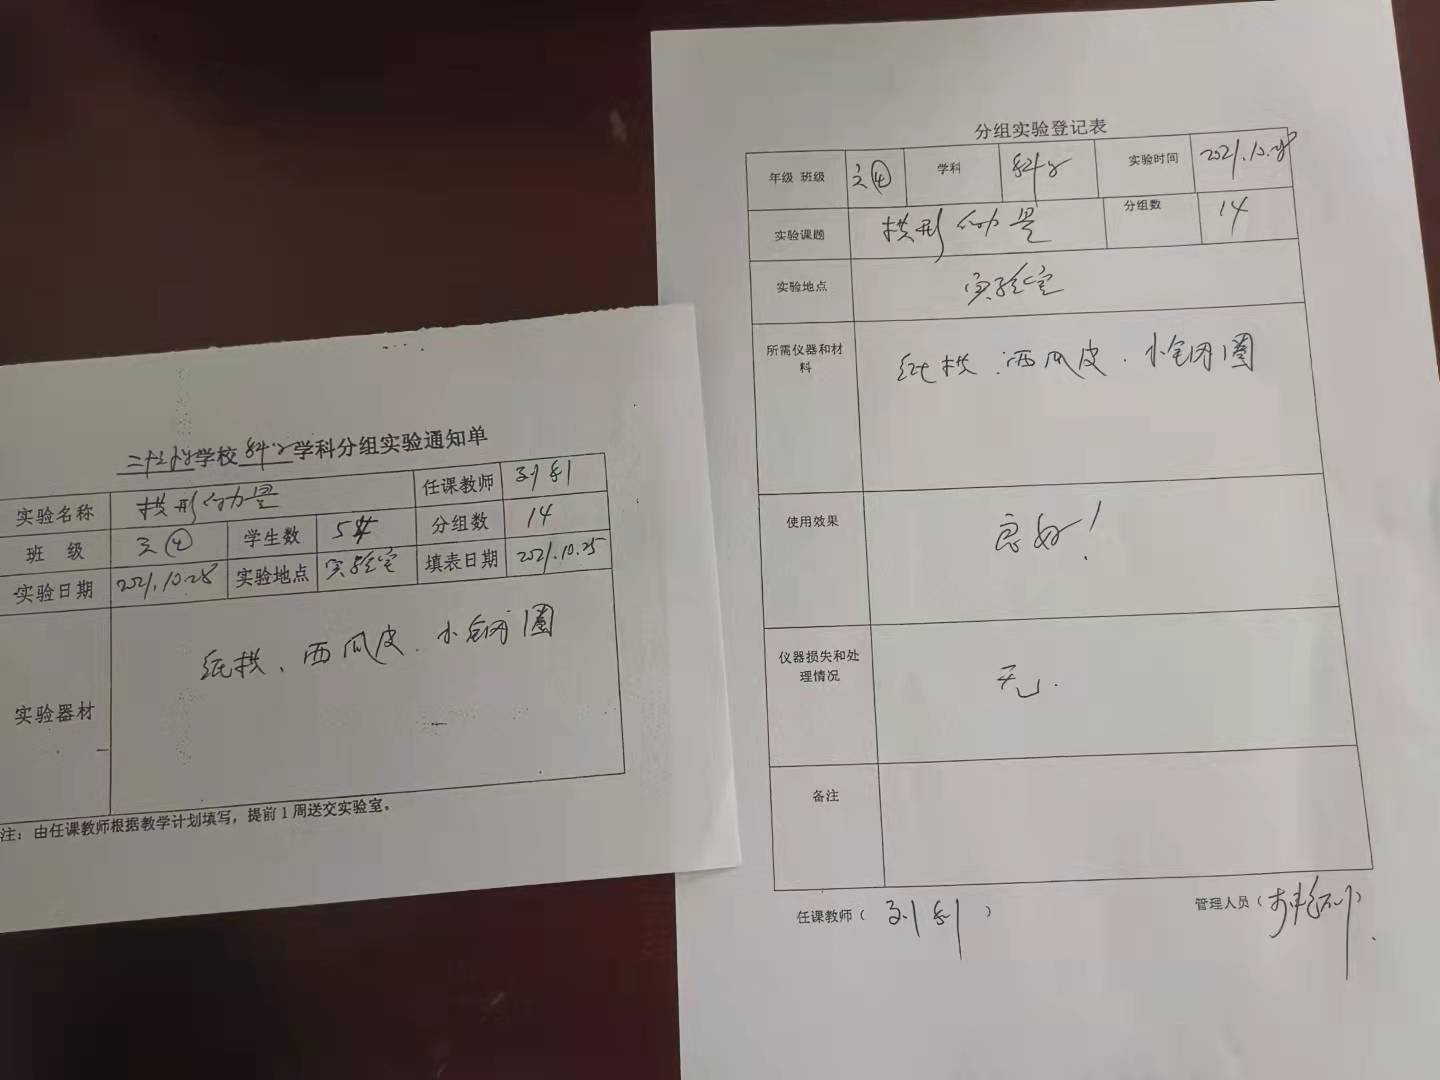 学校 科学 学科分组实验通知单
实验名称 拱形的力量 任课教师
班 级 三④ 学生数 分组数 14
实验日期 2021.10.28 实验地点 实验室 填表日期 2021.10.25
实验器材 纸拱、西瓜皮、小钢圈
注：由任课教师根据教学计划填写，提前1周送交实验室。
分组实验登记表
年级 班级 三④ 学科 科学 实验时间 2021.10.28
实验课题 拱形的力量 分组数 14
实验地点 实验室
所需仪器和材
料
纸拱、西瓜皮、小钢圈
使用效果 良好！
仪器损失和处
理情况
无.
备注
任课教师（ ） 管理人员（ ）